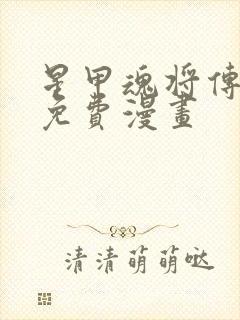 星甲魂将傳
免費漫畫
清清萌萌哒